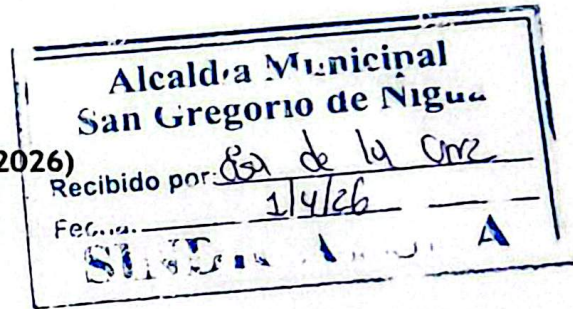 Alcaldia Municipal
San Gregorio de Nigua
2026)
Recibido por: de la Cruz
Fecha: 1/4/26
SINDICATURA